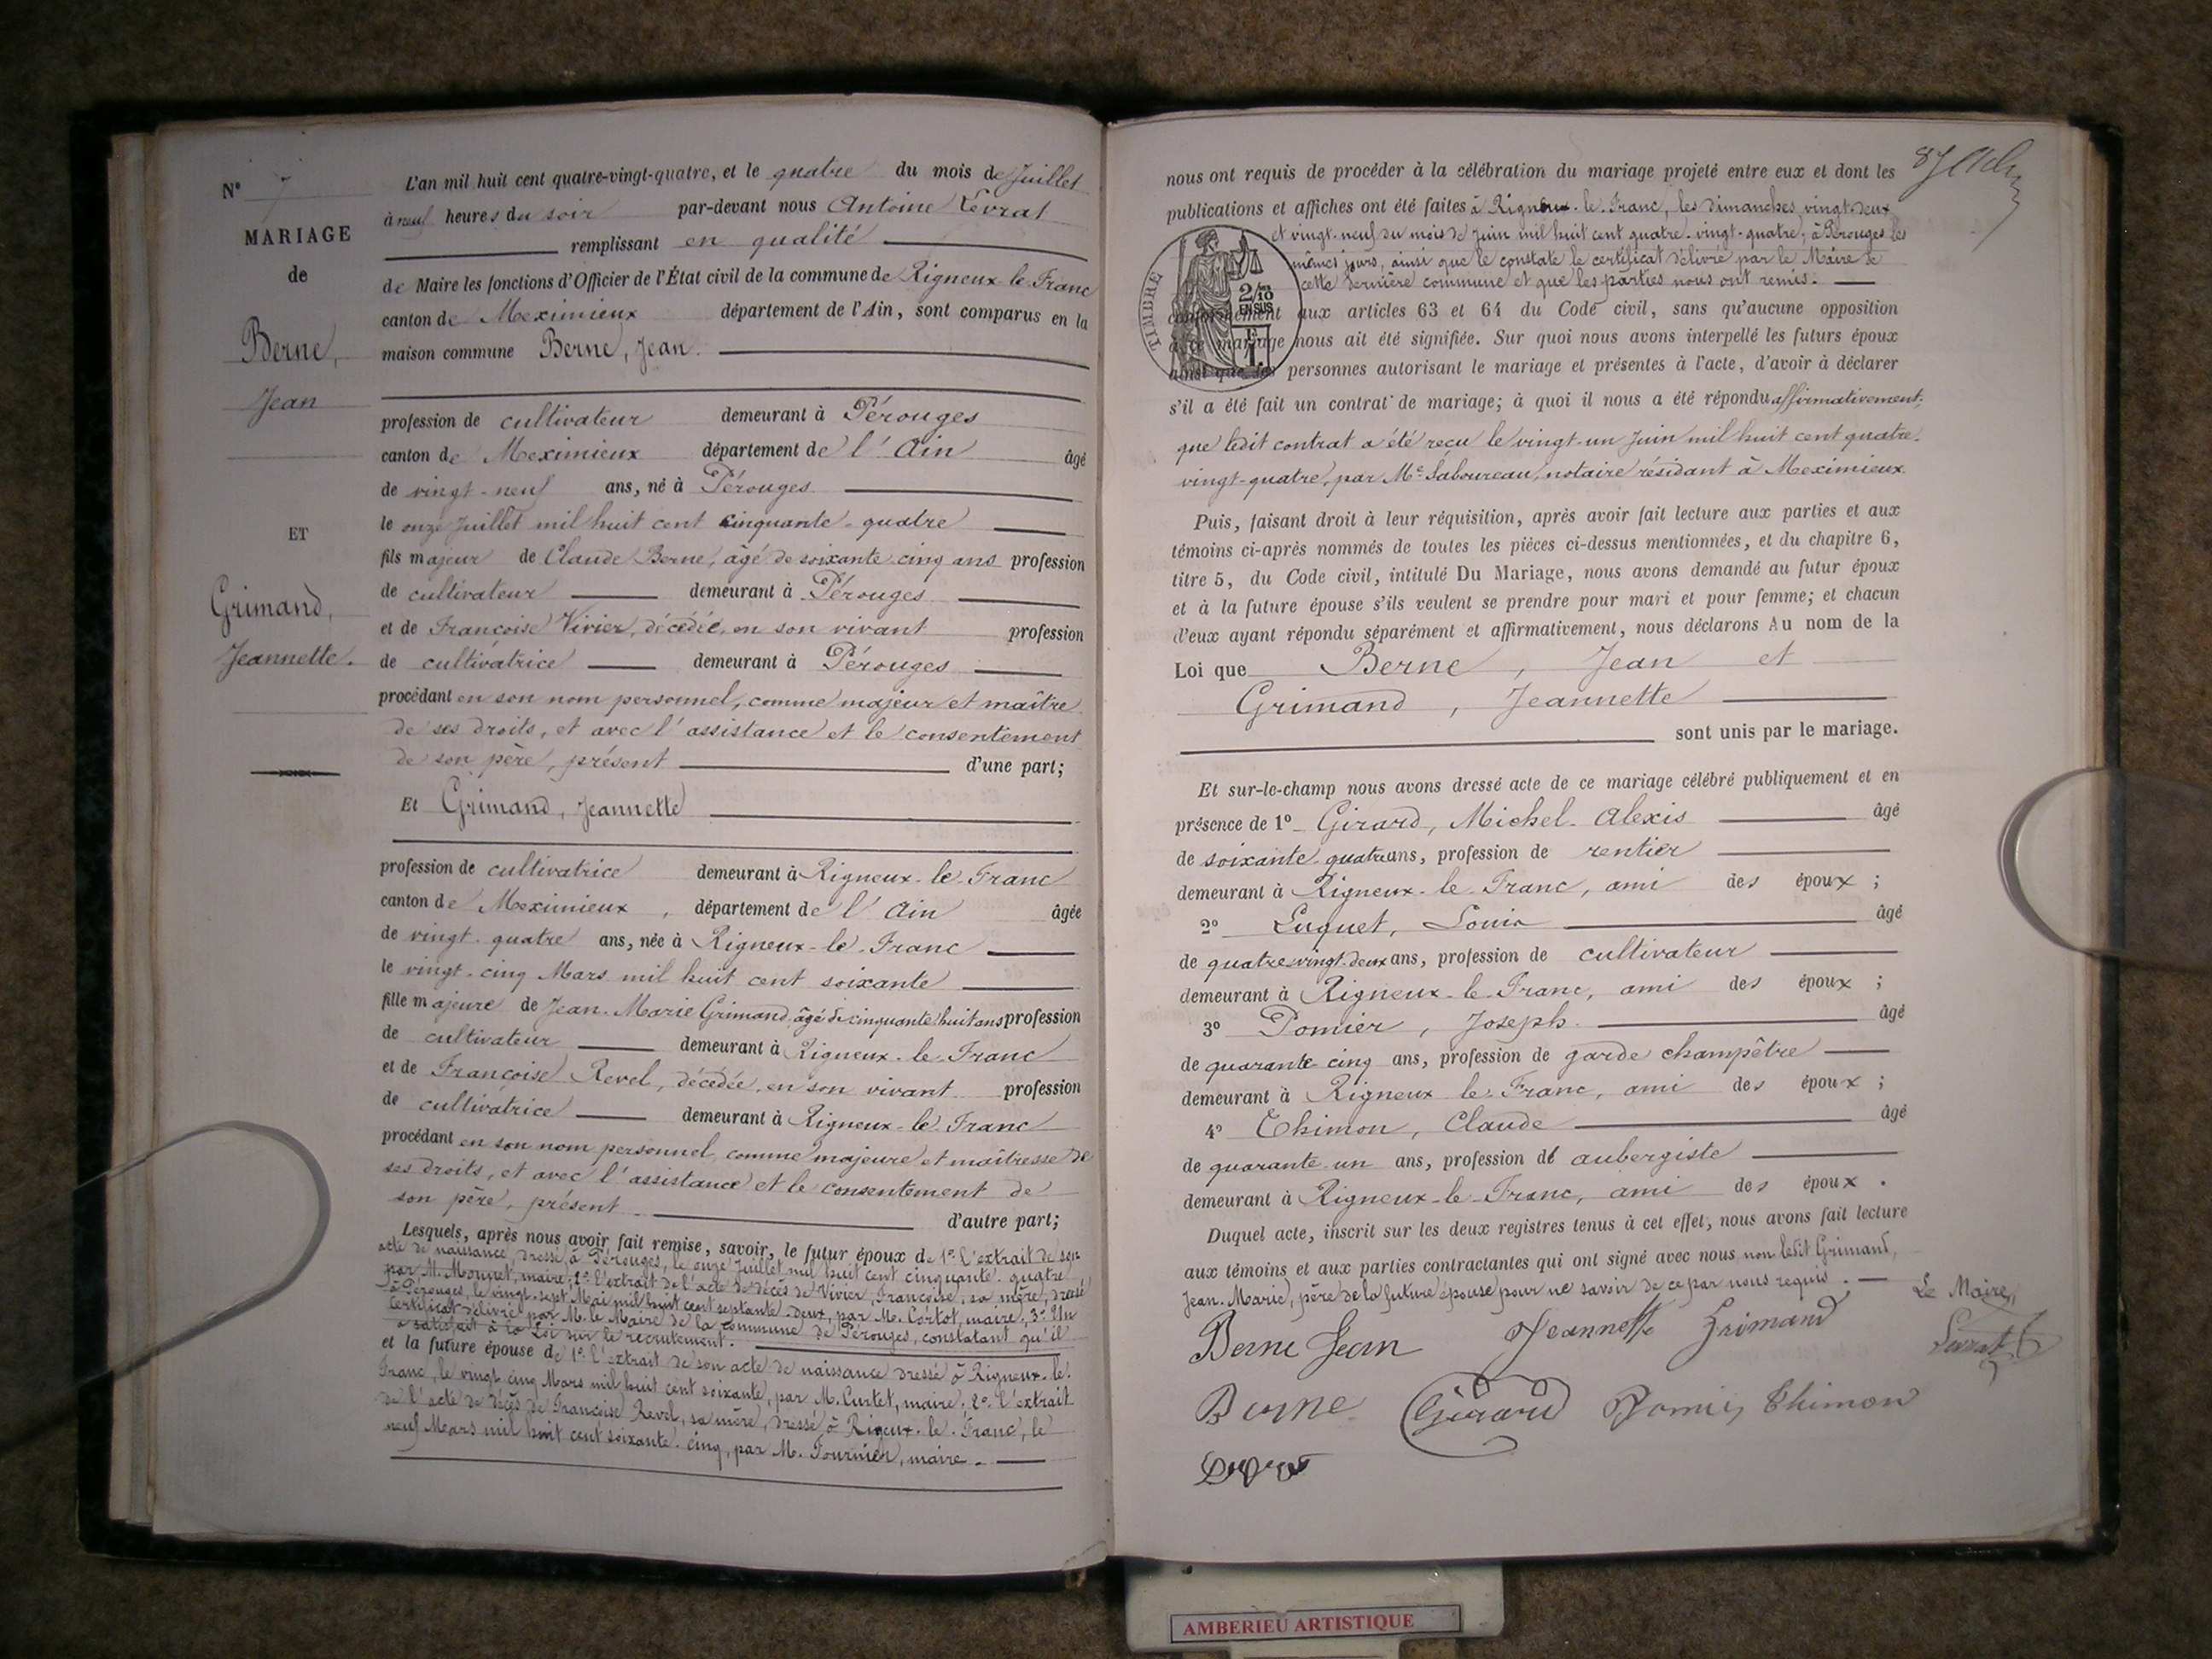 N° 7
MARIAGE
de
Berne,
Jean
ET
Grimand,
Jeannette.
L'an mil huit cent quatre-vingt-quatre, et le quatre du mois de Juillet
à neuf heures du soir par-devant nous Antoine Levrat
remplissant en qualité
de Maire les fonctions d'Officier de l'État civil de la commune de Rigneux-le-Franc
canton de Meximieux département de l'Ain, sont comparus en la
maison commune Berne, Jean.
profession de cultivateur demeurant à Pérouges
canton de Meximieux département de l'Ain âgé
de vingt-neuf ans, né à Pérouges
le onze Juillet mil huit cent cinquante-quatre
fils majeur de Claude Berne, âgé de soixante-cinq ans profession
de cultivateur demeurant à Pérouges
et de Françoise Vivier, décédée, en son vivant profession
de cultivatrice demeurant à Pérouges
procédant en son nom personnel, comme majeur et maître
de ses droits, et avec l'assistance et le consentement
de son père, présent d'une part;
Et Grimand, Jeannette
profession de cultivatrice demeurant à Rigneux-le-Franc
canton de Meximieux, département de l'Ain âgée
de vingt-quatre ans, née à Rigneux-le-Franc
le vingt-cinq Mars mil huit cent soixante
fille majeure de Jean-Marie Grimand, âgé de cinquante-huit ans profession
de cultivateur demeurant à Rigneux-le-Franc
et de Françoise Revel, décédée, en son vivant profession
de cultivatrice demeurant à Rigneux-le-Franc
procédant en son nom personnel, comme majeure et maîtresse de
ses droits, et avec l'assistance et le consentement de
son père, présent d'autre part;
Lesquels, après nous avoir fait remise, savoir, le futur époux de 1° l'extrait de son
acte de naissance dressé à Pérouges, le onze Juillet mil huit cent cinquante-quatre
par M. Monnet, maire; 2° l'extrait de l'acte de décès de Vivier, Françoise, sa mère, dressé
à Pérouges, le vingt-sept Mai mil huit cent septante-deux, par M. Cortot, maire; 3° Un
certificat délivré par M. le Maire de la commune de Pérouges, constatant qu'il
a satisfait à la Loi sur le recrutement.
et la future épouse de 1° l'extrait de son acte de naissance dressé à Rigneux-le-
Franc, le vingt-cinq Mars mil huit cent soixante, par M. Curtet, maire; 2° l'extrait
de l'acte de décès de Françoise Revel, sa mère, dressé à Rigneux-le-Franc, le
neuf Mars mil huit cent soixante-cinq, par M. Fournier, maire.
nous ont requis de procéder à la célébration du mariage projeté entre eux et dont les
publications et affiches ont été faites à Rigneux-le-Franc, les dimanches vingt-deux
et vingt-neuf du mois de Juin mil huit cent quatre-vingt-quatre; à Pérouges les
mêmes jours, ainsi que le constate le certificat délivré par le Maire de
cette dernière commune et que les parties nous ont remis.
TIMBRE
2/10
EN SUS
conformément aux articles 63 et 64 du Code civil, sans qu'aucune opposition
à ce mariage nous ait été signifiée. Sur quoi nous avons interpellé les futurs époux
ainsi que les personnes autorisant le mariage et présentes à l'acte, d'avoir à déclarer
s'il a été fait un contrat de mariage; à quoi il nous a été répondu affirmativement;
que ledit contrat a été reçu le vingt-un Juin mil huit cent quatre-
vingt-quatre, par Me Laboureau, notaire résidant à Meximieux
Puis, faisant droit à leur réquisition, après avoir fait lecture aux parties et aux
témoins ci-après nommés de toutes les pièces ci-dessus mentionnées, et du chapitre 6,
titre 5, du Code civil, intitulé Du Mariage, nous avons demandé au futur époux
et à la future épouse s'ils veulent se prendre pour mari et pour femme; et chacun
d'eux ayant répondu séparément et affirmativement, nous déclarons Au nom de la
Loi que Berne, Jean et
Grimand, Jeannette
sont unis par le mariage.
Et sur-le-champ nous avons dressé acte de ce mariage célébré publiquement et en
présence de 1° Girard, Michel-Alexis âgé
de soixante-quatre ans, profession de rentier
demeurant à Rigneux-le-Franc, ami des époux;
2° Luquet, Louis âgé
de quatre-vingt-deux ans, profession de cultivateur
demeurant à Rigneux-le-Franc, ami des époux;
3° Pomier, Joseph. âgé
de quarante-cinq ans, profession de garde champêtre
demeurant à Rigneux le Franc, ami des époux;
4° Thimon, Claude âgé
de quarante-un ans, profession de aubergiste
demeurant à Rigneux-le-Franc, ami des époux.
Duquel acte, inscrit sur les deux registres tenus à cet effet, nous avons fait lecture
aux témoins et aux parties contractantes qui ont signé avec nous, non ledit Grimand,
Jean-Marie, père de la future épouse pour ne savoir de ce par nous requis.
Le Maire,
Berne Jean Jeannette Grimand Levrat
Berne Girard Pomier Thimon
AMBERIEU ARTISTIQUE